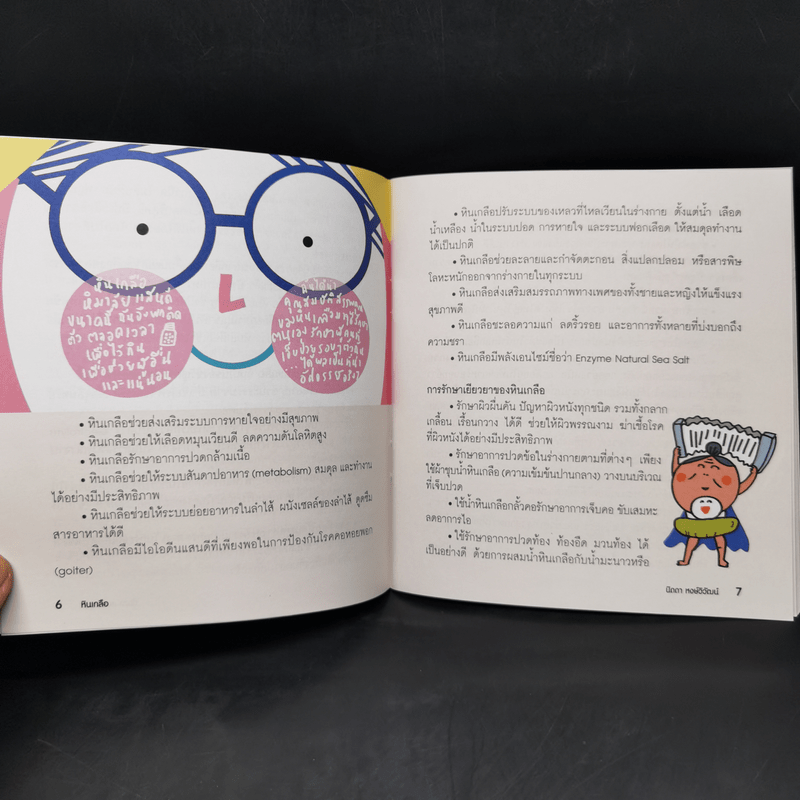 หินเกลือ
หิมาลัย แสนดี
ขนาดนี้ ฉันจึงพกติด
ตัว ตลอดเวลา
เพื่อใช้กิน
เพื่อช่วยผู้อื่น
และแน่นอน
คุณสมบัติสรรพคุณ
ของหินเกลือมารักษา
ตนเอง รักษาผู้คนที่
เจ็บป่วยรอบๆตัวฉัน
... ได้ผลเป็นที่น่า
อัศจรรย์จริงๆ
• หินเกลือช่วยส่งเสริมระบบการหายใจอย่างมีสุขภาพ
• หินเกลือช่วยให้เลือดหมุนเวียนดี ลดความดันโลหิตสูง
• หินเกลือรักษาอาการปวดกล้ามเนื้อ
• หินเกลือช่วยให้ระบบสันดาปอาหาร (metabolism) สมดุล และทำงาน
ได้อย่างมีประสิทธิภาพ
• หินเกลือช่วยให้ระบบย่อยอาหารในลำไส้ ผนังเซลล์ของลำไส้ ดูดซึม
สารอาหารได้ดี
• หินเกลือมีไอโอดีนแสนดีที่เพียงพอในการป้องกันโรคคอหอยพอก
(goiter)
6 หินเกลือ
• หินเกลือปรับระบบของเหลวที่ไหลเวียนในร่างกาย ตั้งแต่น้ำ เลือด
น้ำเหลือง น้ำในระบบปอด การหายใจ และระบบฟอกเลือด ให้สมดุลทำงาน
ได้เป็นปกติ
• หินเกลือช่วยละลายและกำจัดตะกอน สิ่งแปลกปลอม หรือสารพิษ
โลหะหนักออกจากร่างกายในทุกระบบ
• หินเกลือส่งเสริมสมรรถภาพทางเพศของทั้งชายและหญิงให้แข็งแรง
สุขภาพดี
• หินเกลือชะลอความแก่ ลดริ้วรอย และอาการทั้งหลายที่บ่งบอกถึง
ความชรา
• หินเกลือมีพลังเอนไซม์ชื่อว่า Enzyme Natural Sea Salt
การรักษาเยียวยาของหินเกลือ
• รักษาผิวผื่นคัน ปัญหาผิวหนังทุกชนิด รวมทั้งกลาก
เกลื้อน เรื้อนกวาง ได้ดี ช่วยให้ผิวพรรณงาม ฆ่าเชื้อโรค
ที่ผิวหนังได้อย่างมีประสิทธิภาพ
• รักษาอาการปวดข้อในร่างกายตามที่ต่างๆ เพียง
ใช้ผ้าชุบน้ำหินเกลือ (ความเข้มข้นปานกลาง) วางบนบริเวณ
ที่เจ็บปวด
• ใช้น้ำหินเกลือกลั้วคอรักษาอาการเจ็บคอ ขับเสมหะ
ลดอาการไอ
• ใช้รักษาอาการปวดท้อง ท้องอืด มวนท้อง ได้
เป็นอย่างดี ด้วยการผสมน้ำหินเกลือกับน้ำมะนาวหรือ
นิดดา หงษ์วิวัฒน์ 7